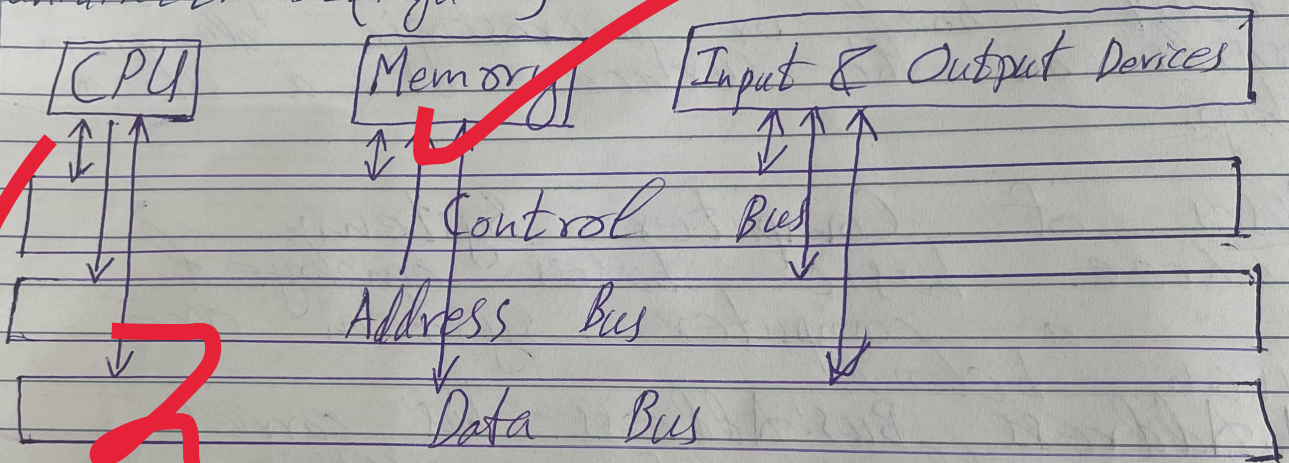 CPU Memory Input & Output Devices
Control Bus
Address Bus
Data Bus